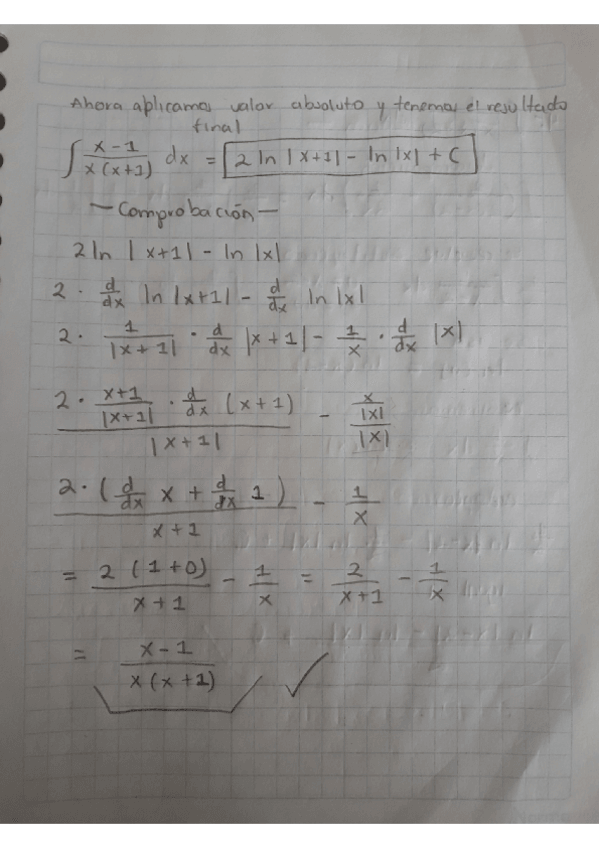 Ahora aplicamos valor absoluto y tenemos el resultado
final
∫ x-1 / x(x+1) dx = 2 ln |x+1| - ln |x| + C
- Comprobación -
2 ln |x+1| - ln |x|
2 · d/dx ln |x+1| - d/dx ln |x|
2 · 1/|x+1| · d/dx |x+1| - 1/x · d/dx |x|
(2 · x+1/|x+1| · d/dx (x+1)) / |x+1| - (x/|x|) / |x|
2 · (d/dx x + d/dx 1) / x+1 - 1/x
= 2 (1+0) / x+1 - 1/x = 2 / x+1 - 1/x
= x-1 / x(x+1) ✓